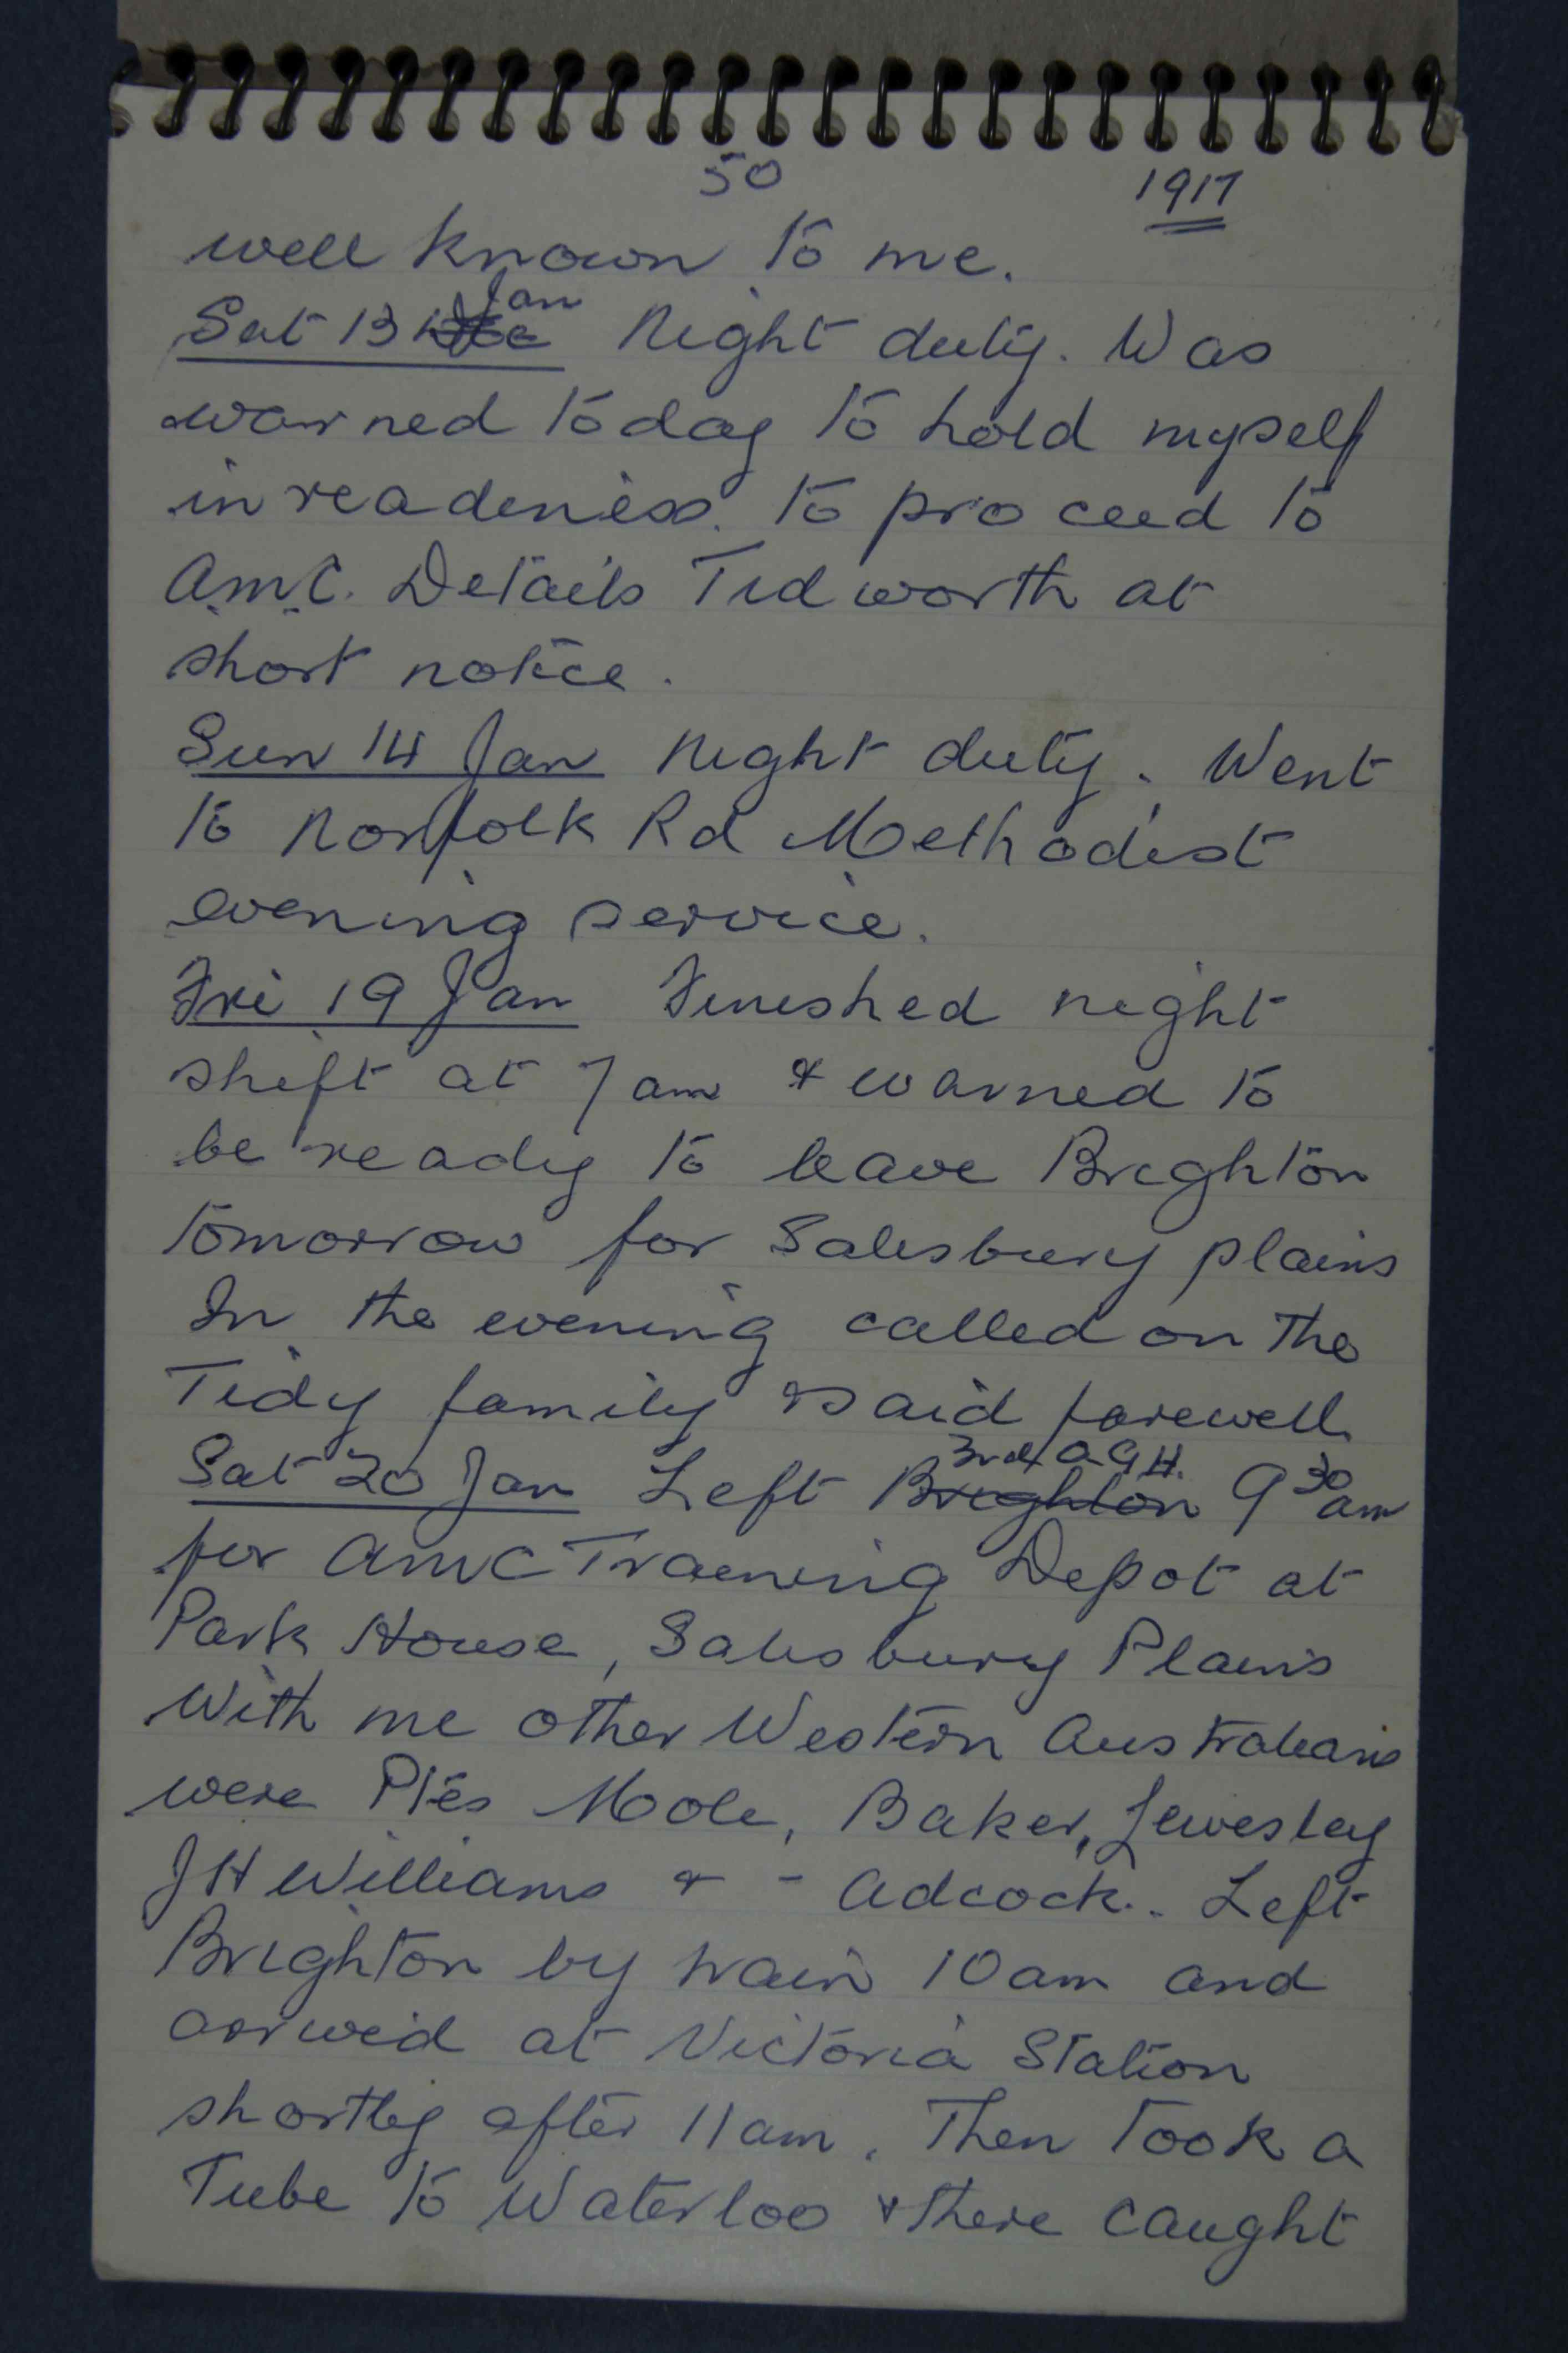 50
1917
well known to me.
Sat 13 Dec Jan Night duty. Was
warned today to hold myself
in readiness. to proceed to
A.M.C. Details Tidworth at
short notice.
Sun 14 Jan Night duty. Went
to Norfolk Rd Methodist
evening service.
Fri 19 Jan Finished night
shift at 7 am & warned to
be ready to leave Brighton
tomorrow for Salisbury plains
In the evening called on the
Tidy family & said farewell.
Sat 20 Jan Left Brighton 3rd A.G.H. 9 30 am
for AMC Training Depot at
Park House, Salisbury Plains
With me other Western Australians
were Ptes Moole, Baker, Lewesley
J H Williams & - Adcock. Left
Brighton by train 10 am and
arrived at Victoria Station
shortly after 11 am. Then took a
Tube to Waterloo & there caught